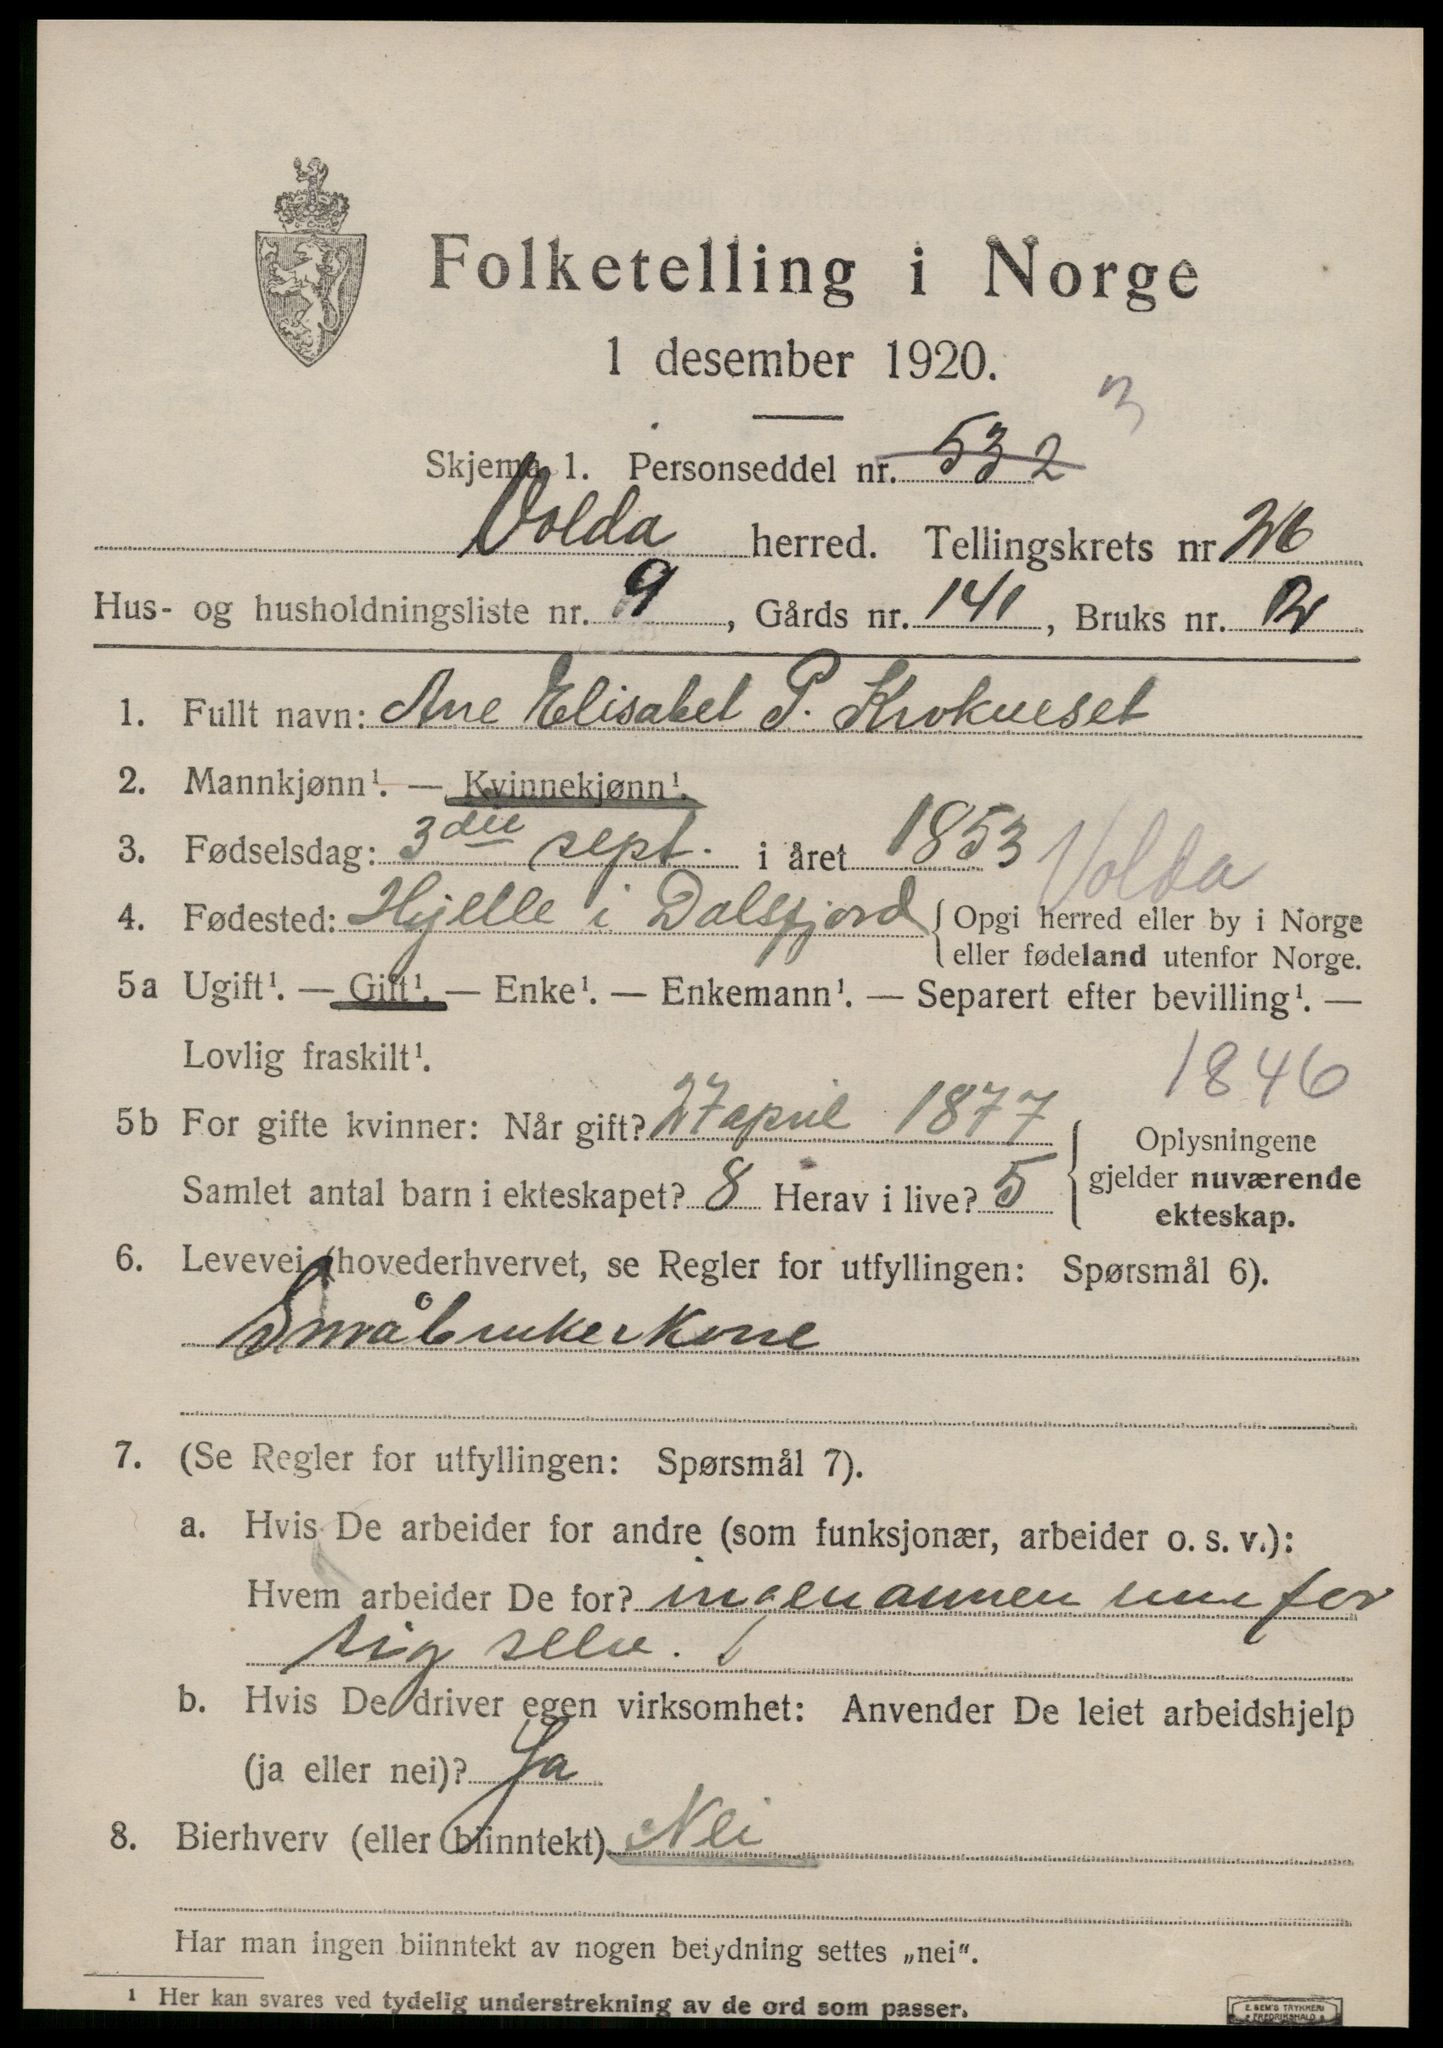 Folketelling i Norge
1 desember 1920.
3
Skjema 1. Personseddel nr. 532
Volda herred. Tellingskrets nr 26
Hus- og husholdningsliste nr. 9, Gårds nr. 141, Bruks nr.
1. Fullt navn: Ane Elisabet P. Krokneset
2. Mannkjønn¹. — Kvinnekjønn¹.
3. Fødselsdag: 3die sept. i året 1853
Volda
4. Fødested: Hjelle i Dalsfjord { Opgi herred eller by i Norge
eller fødeland utenfor Norge.
5a Ugift¹. — Gift¹. — Enke¹. — Enkemann¹. — Separert efter bevilling¹. —
Lovlig fraskilt¹.
1846
5b For gifte kvinner: Når gift? 27 april 1877
Samlet antal barn i ekteskapet? 8 Herav i live? 5
{ Oplysningene
gjelder nuværende
ekteskap.
6. Levevei (hovederhvervet, se Regler for utfyllingen: Spørsmål 6).
Småbrukerkone
7. (Se Regler for utfyllingen: Spørsmål 7).
a. Hvis De arbeider for andre (som funksjonær, arbeider o. s. v.):
Hvem arbeider De for? ingen annen enn for
sig selv.
b. Hvis De driver egen virksomhet: Anvender De leiet arbeidshjelp
(ja eller nei)? Ja
8. Bierhverv (eller biinntekt) Nei
Har man ingen biinntekt av nogen betydning settes „nei".
¹ Her kan svares ved tydelig understrekning av de ord som passer.
E. SEM'S TRYKKERI
FREDRIKSHALD